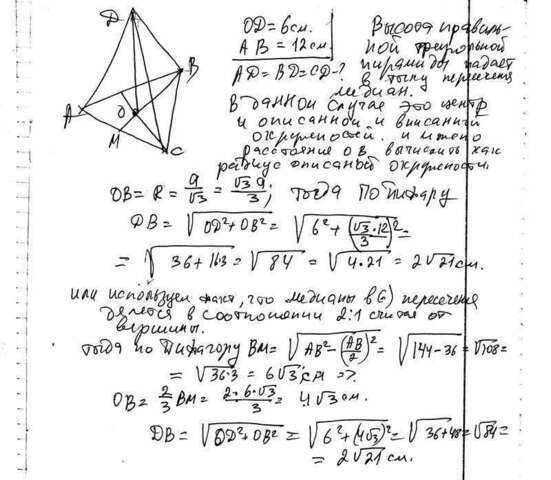 D
A
B
O
M
C
OD=6см.
AB=12см.
AD=BD=CD-?
Высота правиль-
ной треугольной
пирамиды падает
в точку пересечения
медиан.
В данной случае это центр
и описанной и вписанной
окружностей. и можно
расстояние OB вычислить как
радиус описаной окружности.
OB = R = a/√3 = √3a/3; тогда по Пифагору
DB = √(OD²+OB²) = √(6²+(√3·12/3)²) =
= √(36+16·3) = √84 = √(4·21) = 2√21 см.
или используем факт, что медианы в пересечения
делется в соотношении 2:1 считая от
вершины.
тогда по Пифагору BM = √(AB²-(AB/2)²) = √(144-36) = √108 =
= √(36·3) = 6√3 см =>
OB = 2/3 BM = 2·6·√3/3 = 4√3 см.
DB = √(OD²+OB²) = √(6²+(4√3)²) = √(36+48) = √84 =
= 2√21 см.